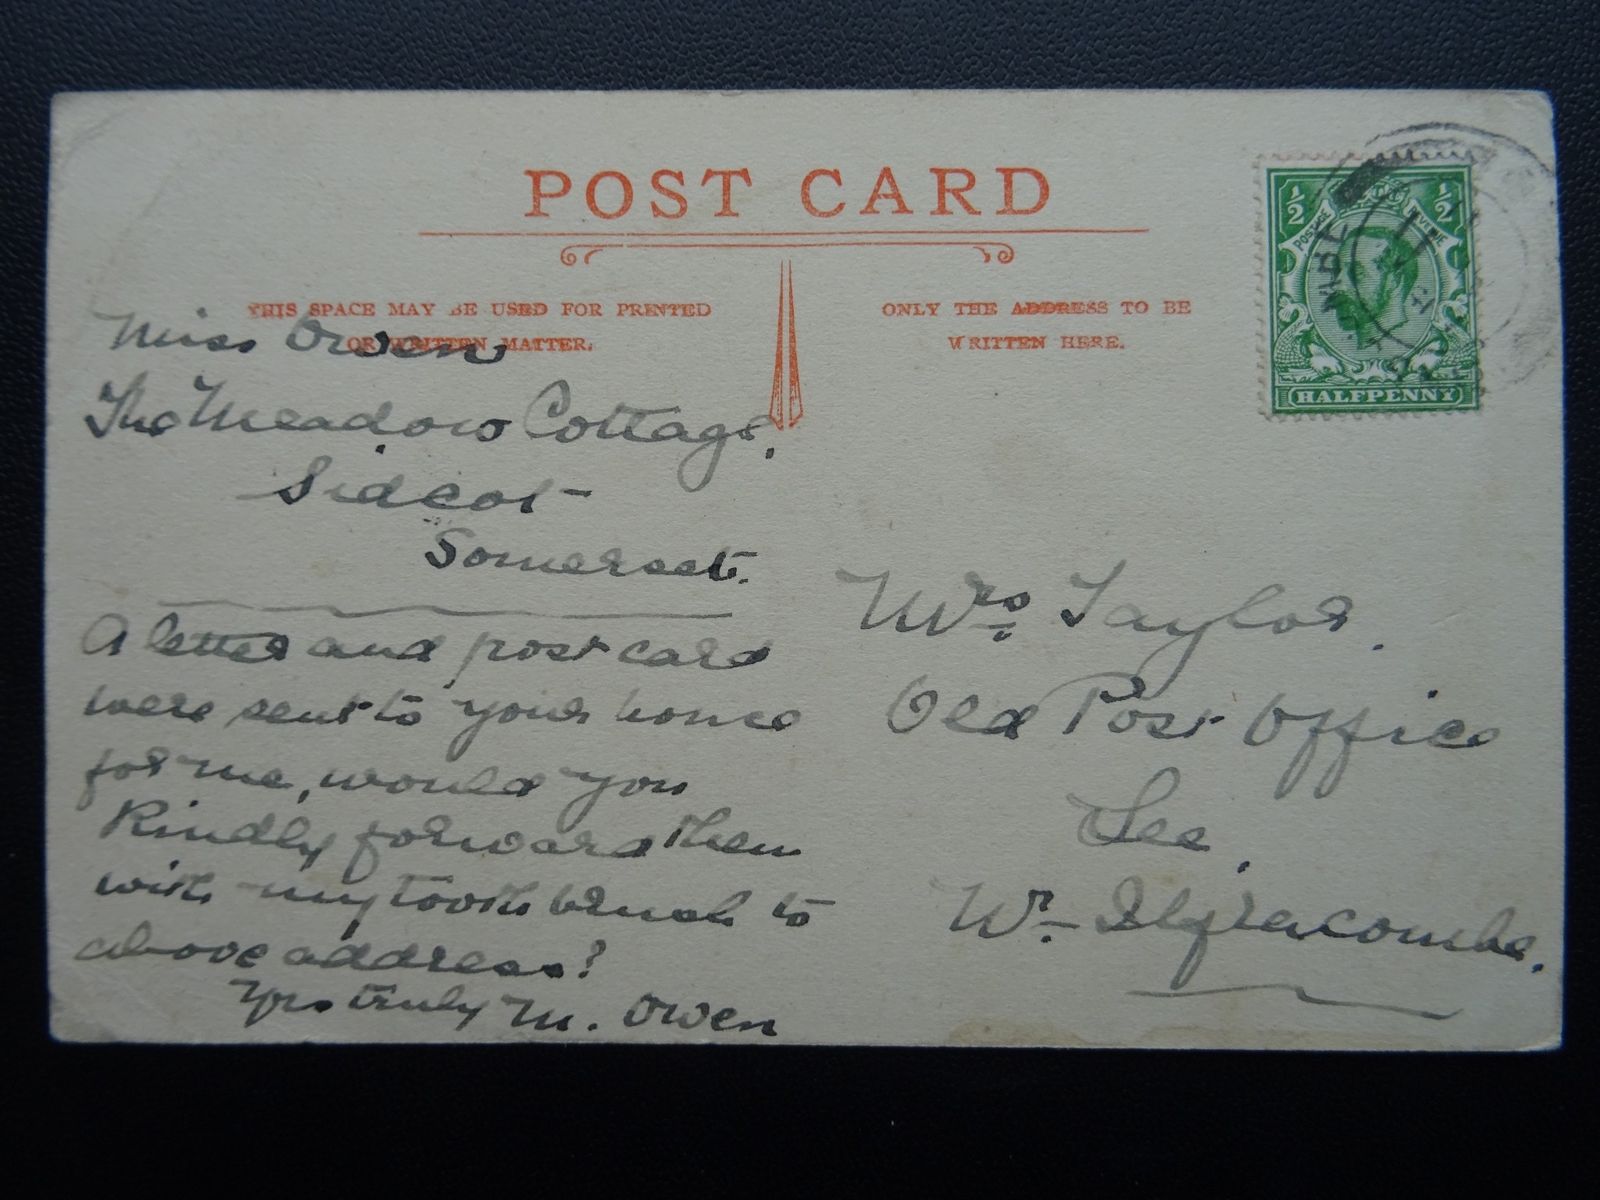 POST CARD
THIS SPACE MAY BE USED FOR PRINTED
OR WRITTEN MATTER.
ONLY THE ADDRESS TO BE
WRITTEN HERE.
½ ½
POSTAGE REVENUE
HALFPENNY
Miss Owen
The Meadow Cottage,
Sidcot
Somerset.
A letter and post card
were sent to your house
for me, would you
Kindly forward them
with my tooth brush to
above address?
Yrs truly M. Owen
Mrs Taylor.
Old Post Office
Lee,
Nr Ilfracombe.